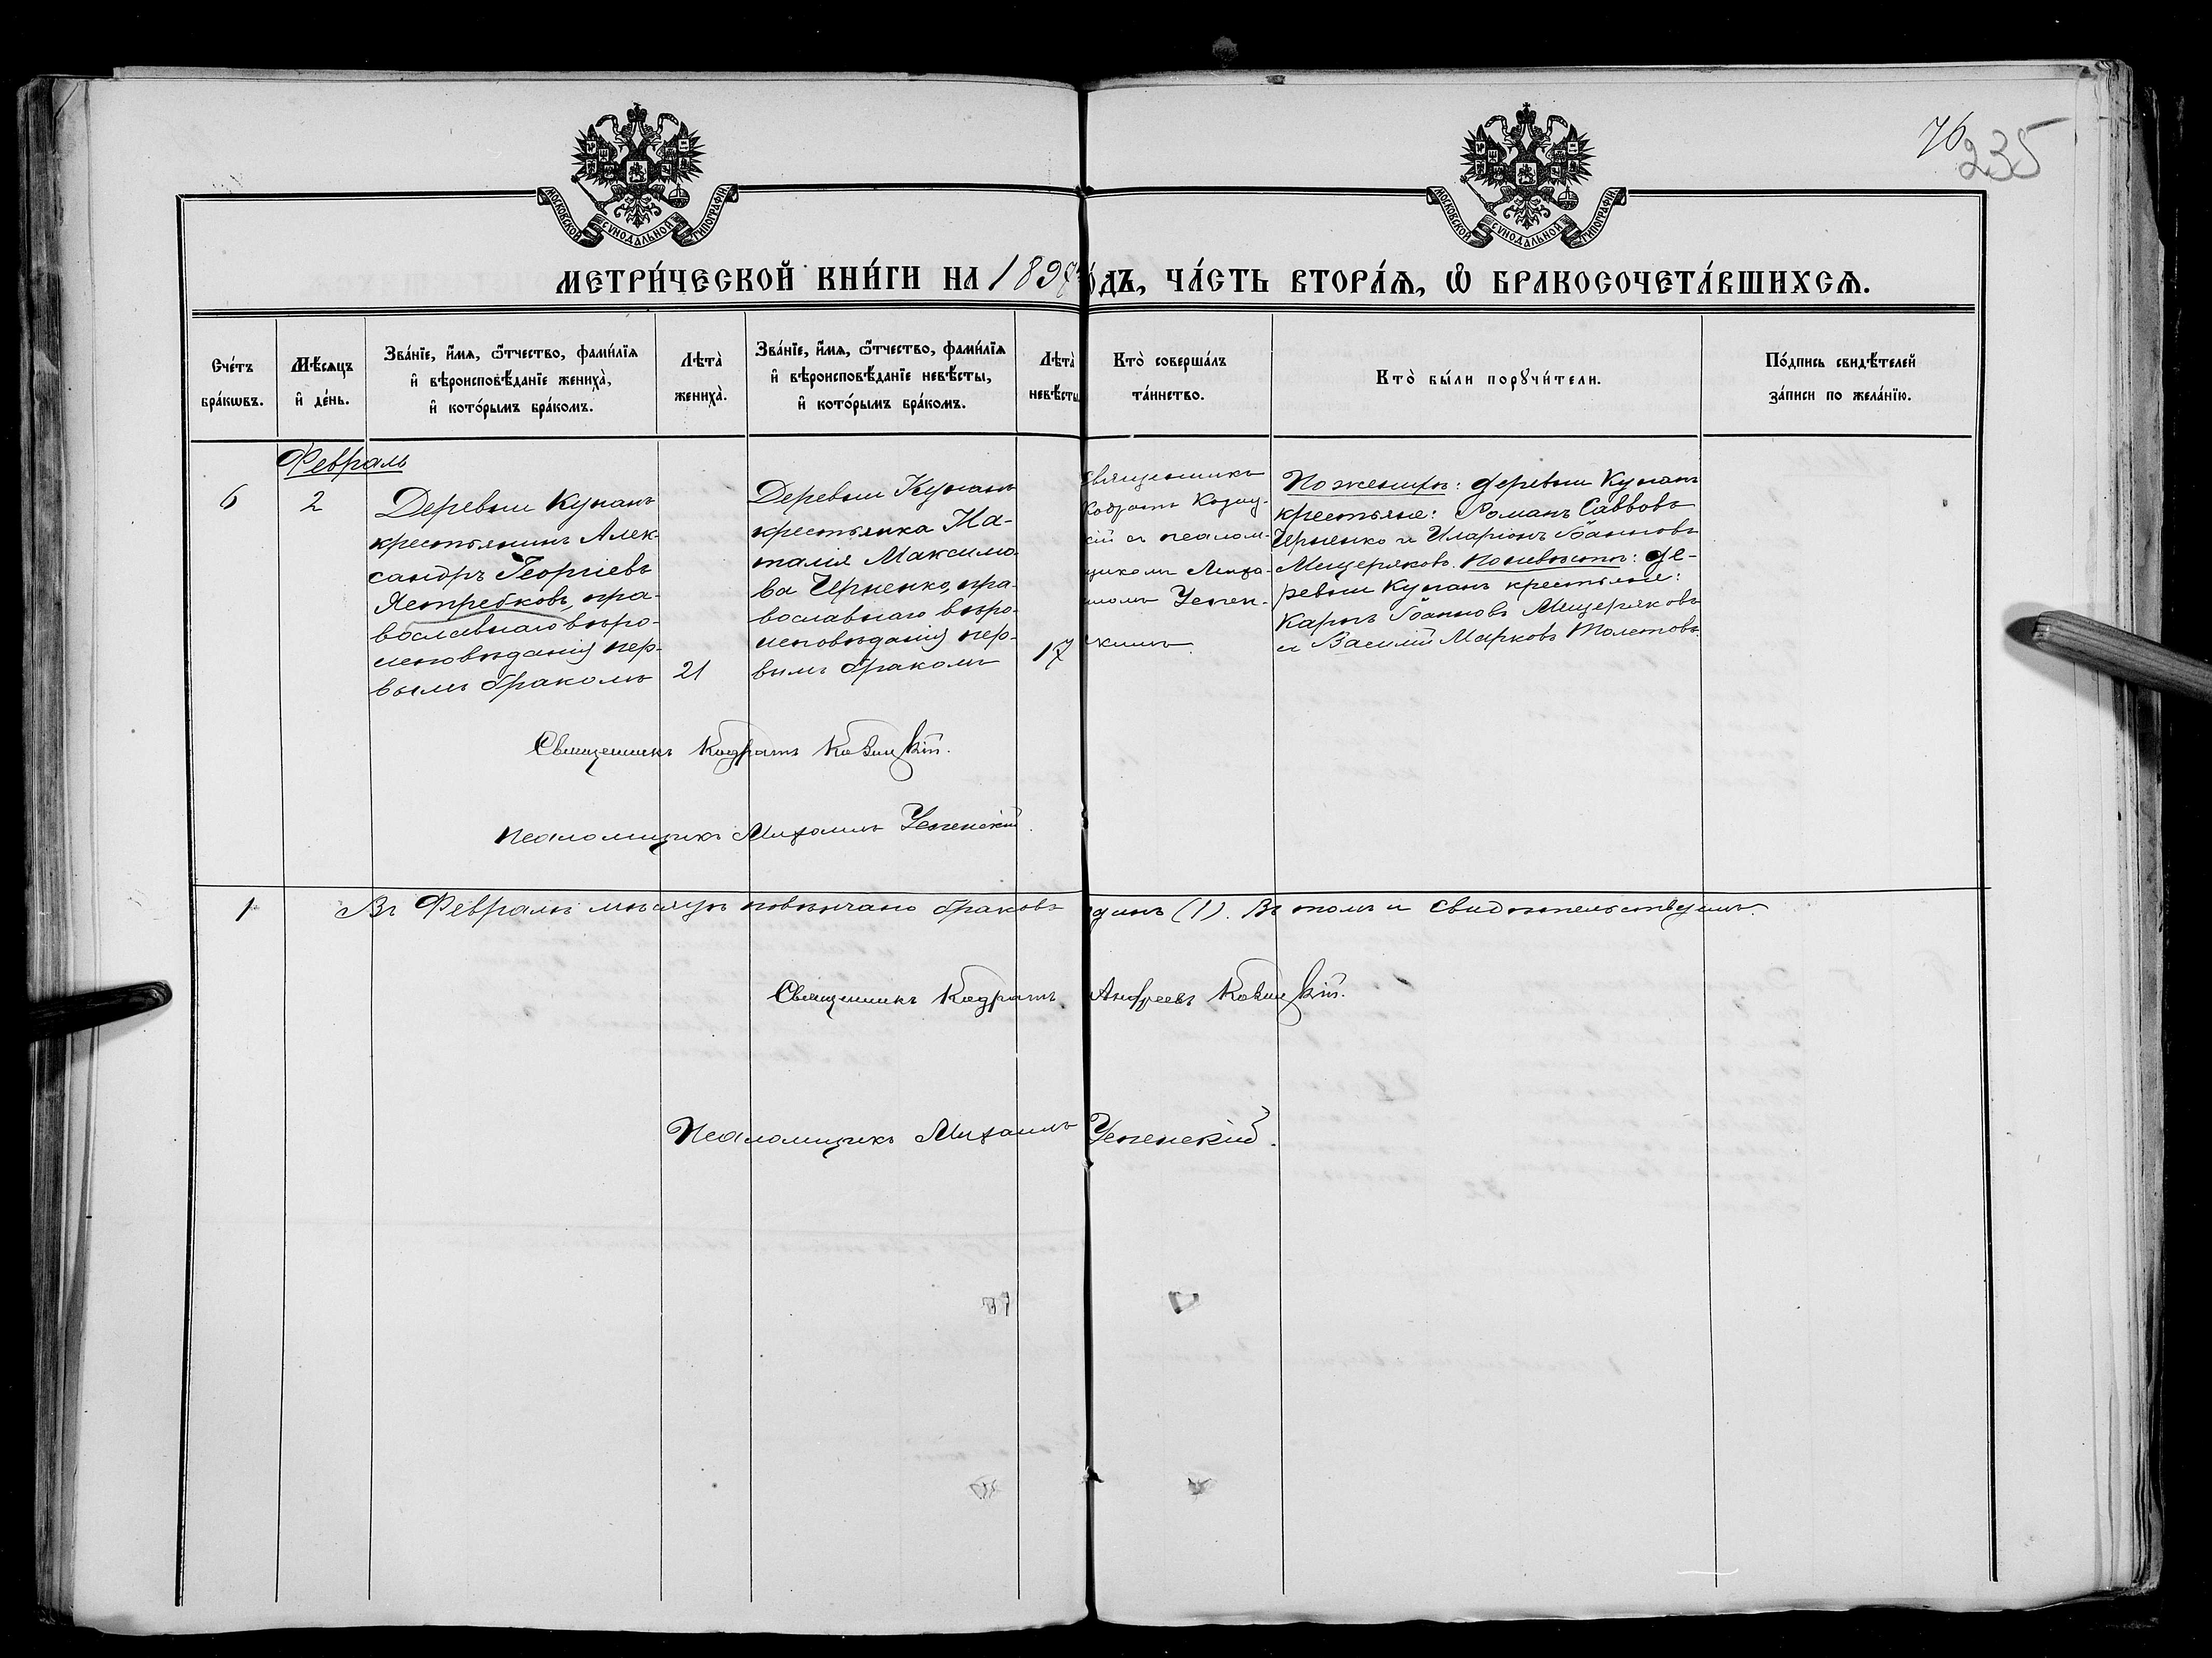 76
235
МОСКОВСКОЙ СѴНОДАЛЬНОЙ ТИПОГРАФІИ
МОСКОВСКОЙ СѴНОДАЛЬНОЙ ТИПОГРАФІИ
МЕТРИ́ЧЕСКОЙ КНИ́ГИ НА 1897 ГО́ДЪ, ЧА́СТЬ ВТОРА́Ѧ, Ѡ҆ БРАКОСОЧЕТА́ВШИХСѦ.
Сче́тъ
бра́кѡвъ.
Мѣ́сѧцъ
и҆ де́нь.
Зва́нїе, и҆́мѧ, ѻ҆́тчество, фами́лїѧ
и҆ вѣроисповѣ́данїе жениха̀,
и҆ кото́рымъ бра́комъ.
Лѣта̀
жениха̀.
Зва́нїе, и҆́мѧ, ѻ҆́тчество, фами́лїѧ
и҆ вѣроисповѣ́данїе невѣ́сты,
и҆ кото́рымъ бра́комъ.
Лѣта̀
невѣ́сты
Кто̀ соверша́лъ
та́инство.
Кто̀ бы́ли порꙋчи́тели.
По́дпись свидѣ́телей
за́писи по жела́нїю.
Февраль
6
2
Деревни Купанъ
крестьянинъ Алек-
сандръ Георгіевъ
Ястребковъ, пра-
вославнаго вѣро-
исповѣданія пер-
вымъ бракомъ
21
Деревни Купанъ
крестьянка На-
талія Максимо-
ва Черненко, пра-
вославнаго вѣро-
исповѣданія пер-
вымъ бракомъ
17
Священникъ
Кодратъ Козиц-
кій съ псалом-
щикомъ Миха-
иломъ Успен-
скимъ
По женихѣ: деревни Купанъ
крестьяне: Романъ Саввовъ
Черненко и Иларіонъ Іоанновъ
Мищеряковъ. По невѣстѣ: де-
ревни Купанъ крестьяне:
Карпъ Іоанновъ Мищеряковъ
и Василій Марковъ Толстовъ
Священникъ Кодратъ Козицкій.
Псаломщикъ Михаилъ Успенскій.
1
Въ Февралѣ мѣсяцѣ повѣнчано браковъ одинъ (1). Въ томъ и свидѣтельствуемъ.
Священникъ Кодратъ Андреевъ Козицкій.
Псаломщикъ Михаилъ Успенскій.